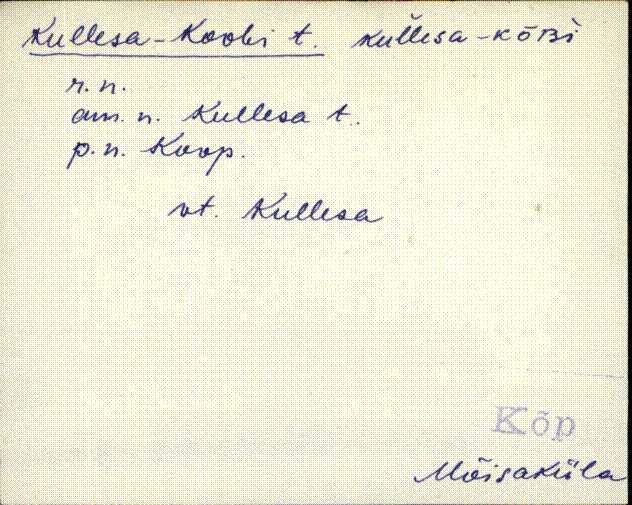 Kullesa-Koobi t. kùl̆lesa-kōʙì
r.n.
am. n. Kullesa t.
p.n. Koop.
vt. Kullesa
Kõp
Mõisaküla